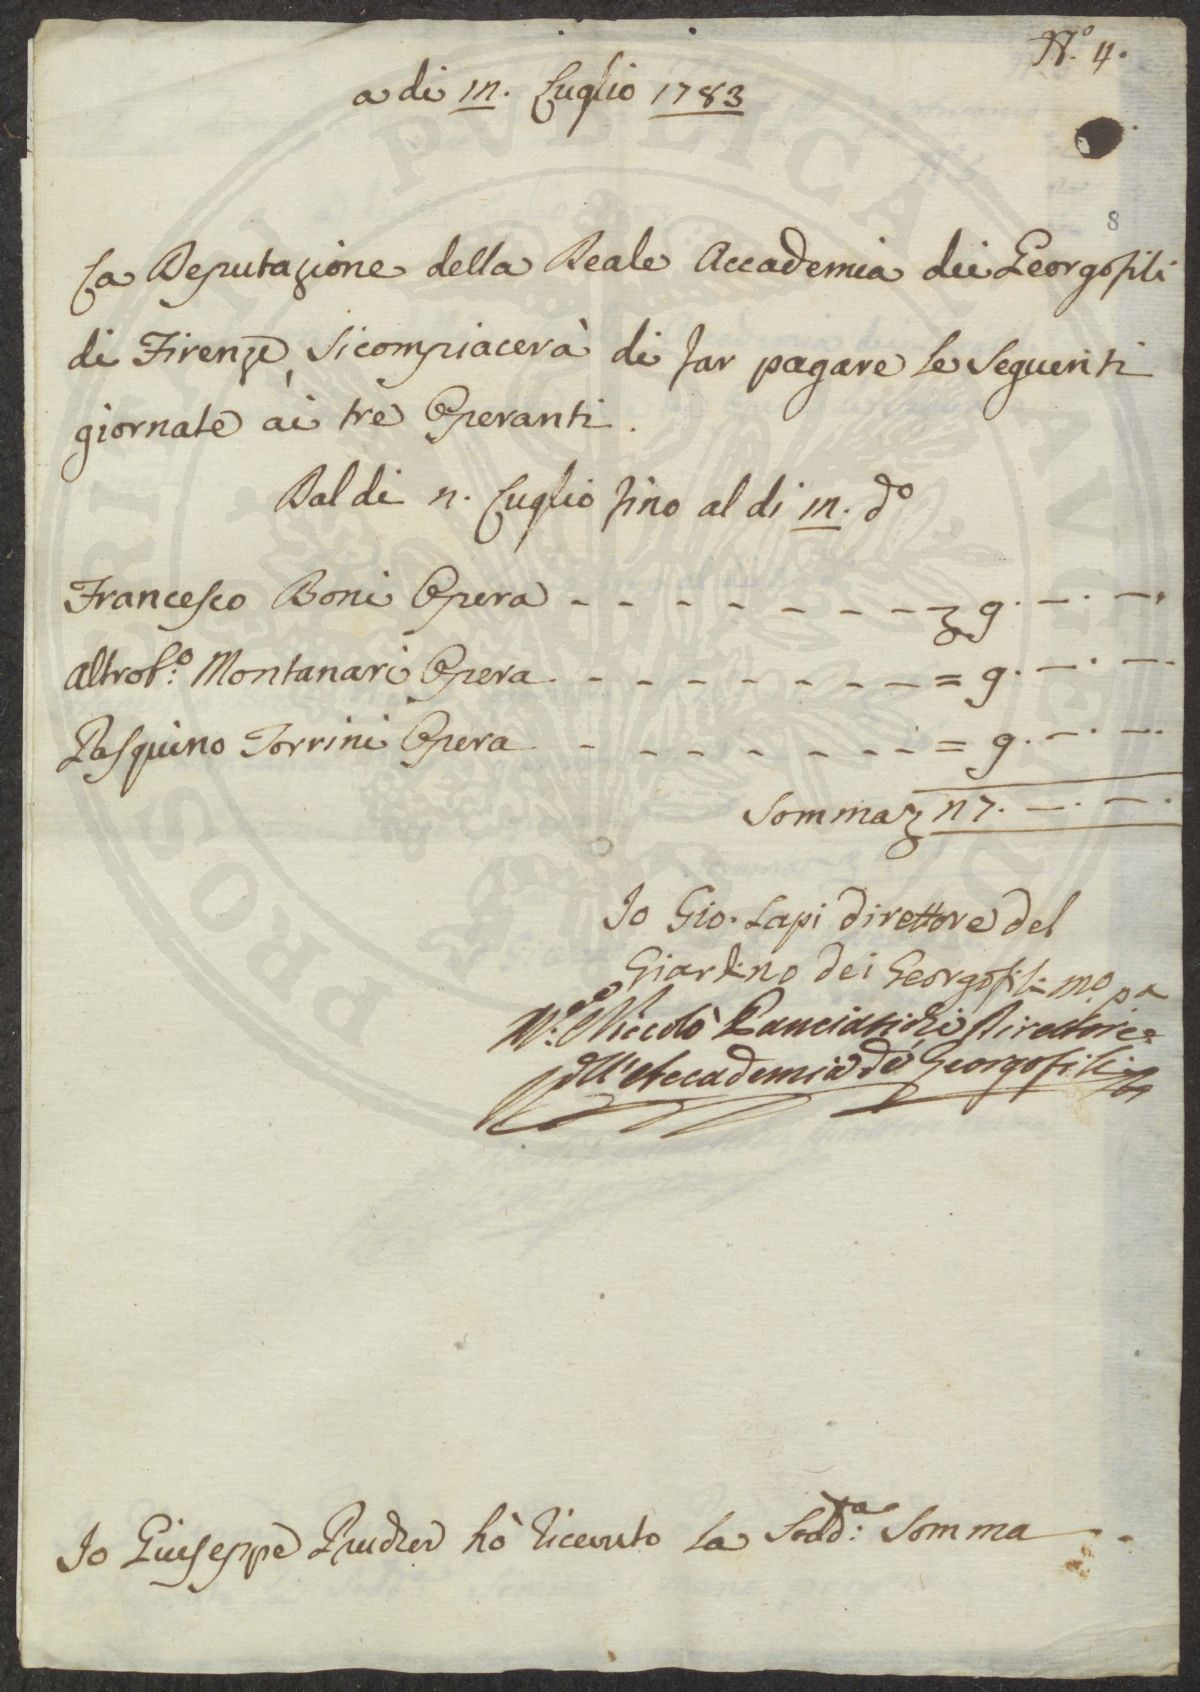 N.º 4.
a di 12. Luglio 1783
8
La Deputazione della Reale Accademia dei Georgofili
di Firenze, Si compiacerà di far pagare le Seguenti
giornate ai tre Operanti.
Dal di 2. Luglio fino al di 12. dº
Francesco Boni Opera - - - - - - - - 9. —. —.
altro f:º Montanari Opera - - - - - - - - = 9. —. —.
Pasquino Torrini Opera - - - - - - - - = 9. —. —.
Somma 27. —. —.
Io Gio. Lapi direttore del
Giardino dei Georgofili mº pª
Niccolò Panciatichi Direttore
dell'Accademia de' Georgofili
Io Giuseppe hò ricevuto la Sudd:ª Somma
PROSPERITATI PVBLICAE AVGENDAE